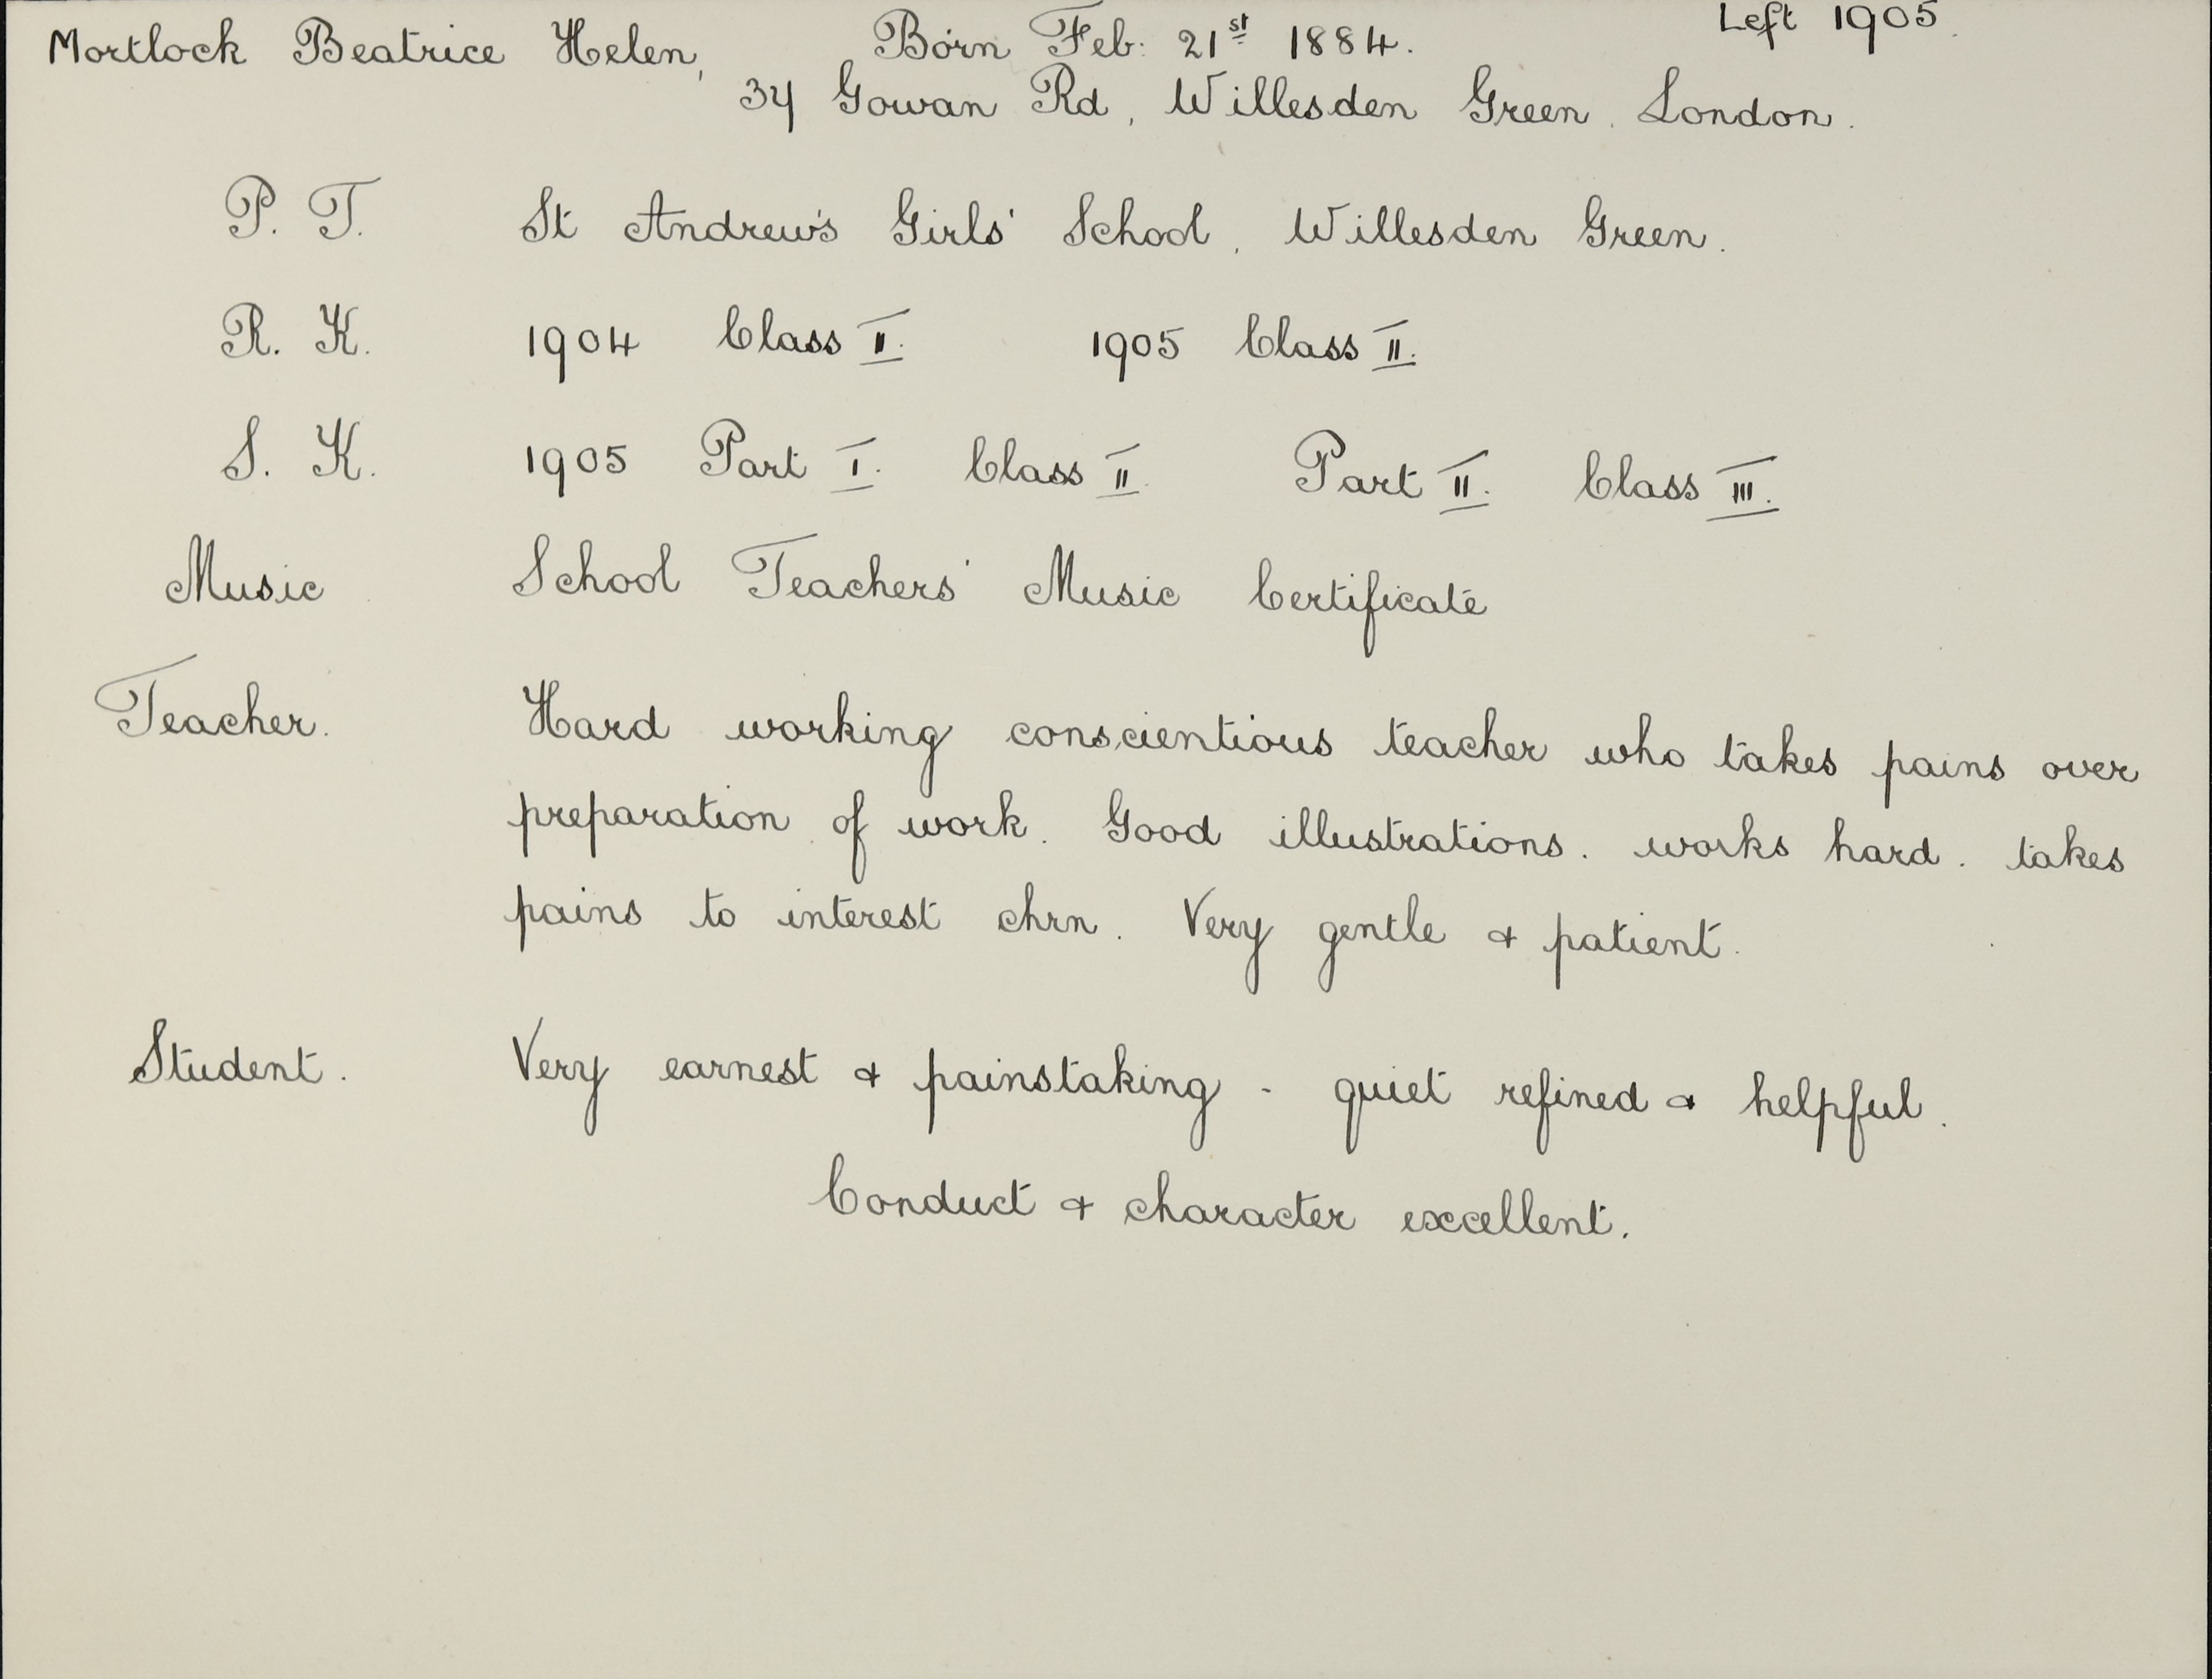 Mortlock Beatrice Helen, Born Feb: 21st 1884. Left 1905.
37 Gowan Rd, Willesden Green. London.
P. T. St Andrew's Girls' School, Willesden Green.
R. K. 1904 Class II. 1905 Class II.
S. K. 1905 Part I. Class II. Part II. Class III.
Music School Teachers' Music Certificate
Teacher. Hard working conscientious teacher who takes pains over
preparation of work. Good illustrations. works hard. takes
pains to interest chrn. Very gentle & patient.
Student. Very earnest & painstaking - quiet refined & helpful.
Conduct & character excellent.